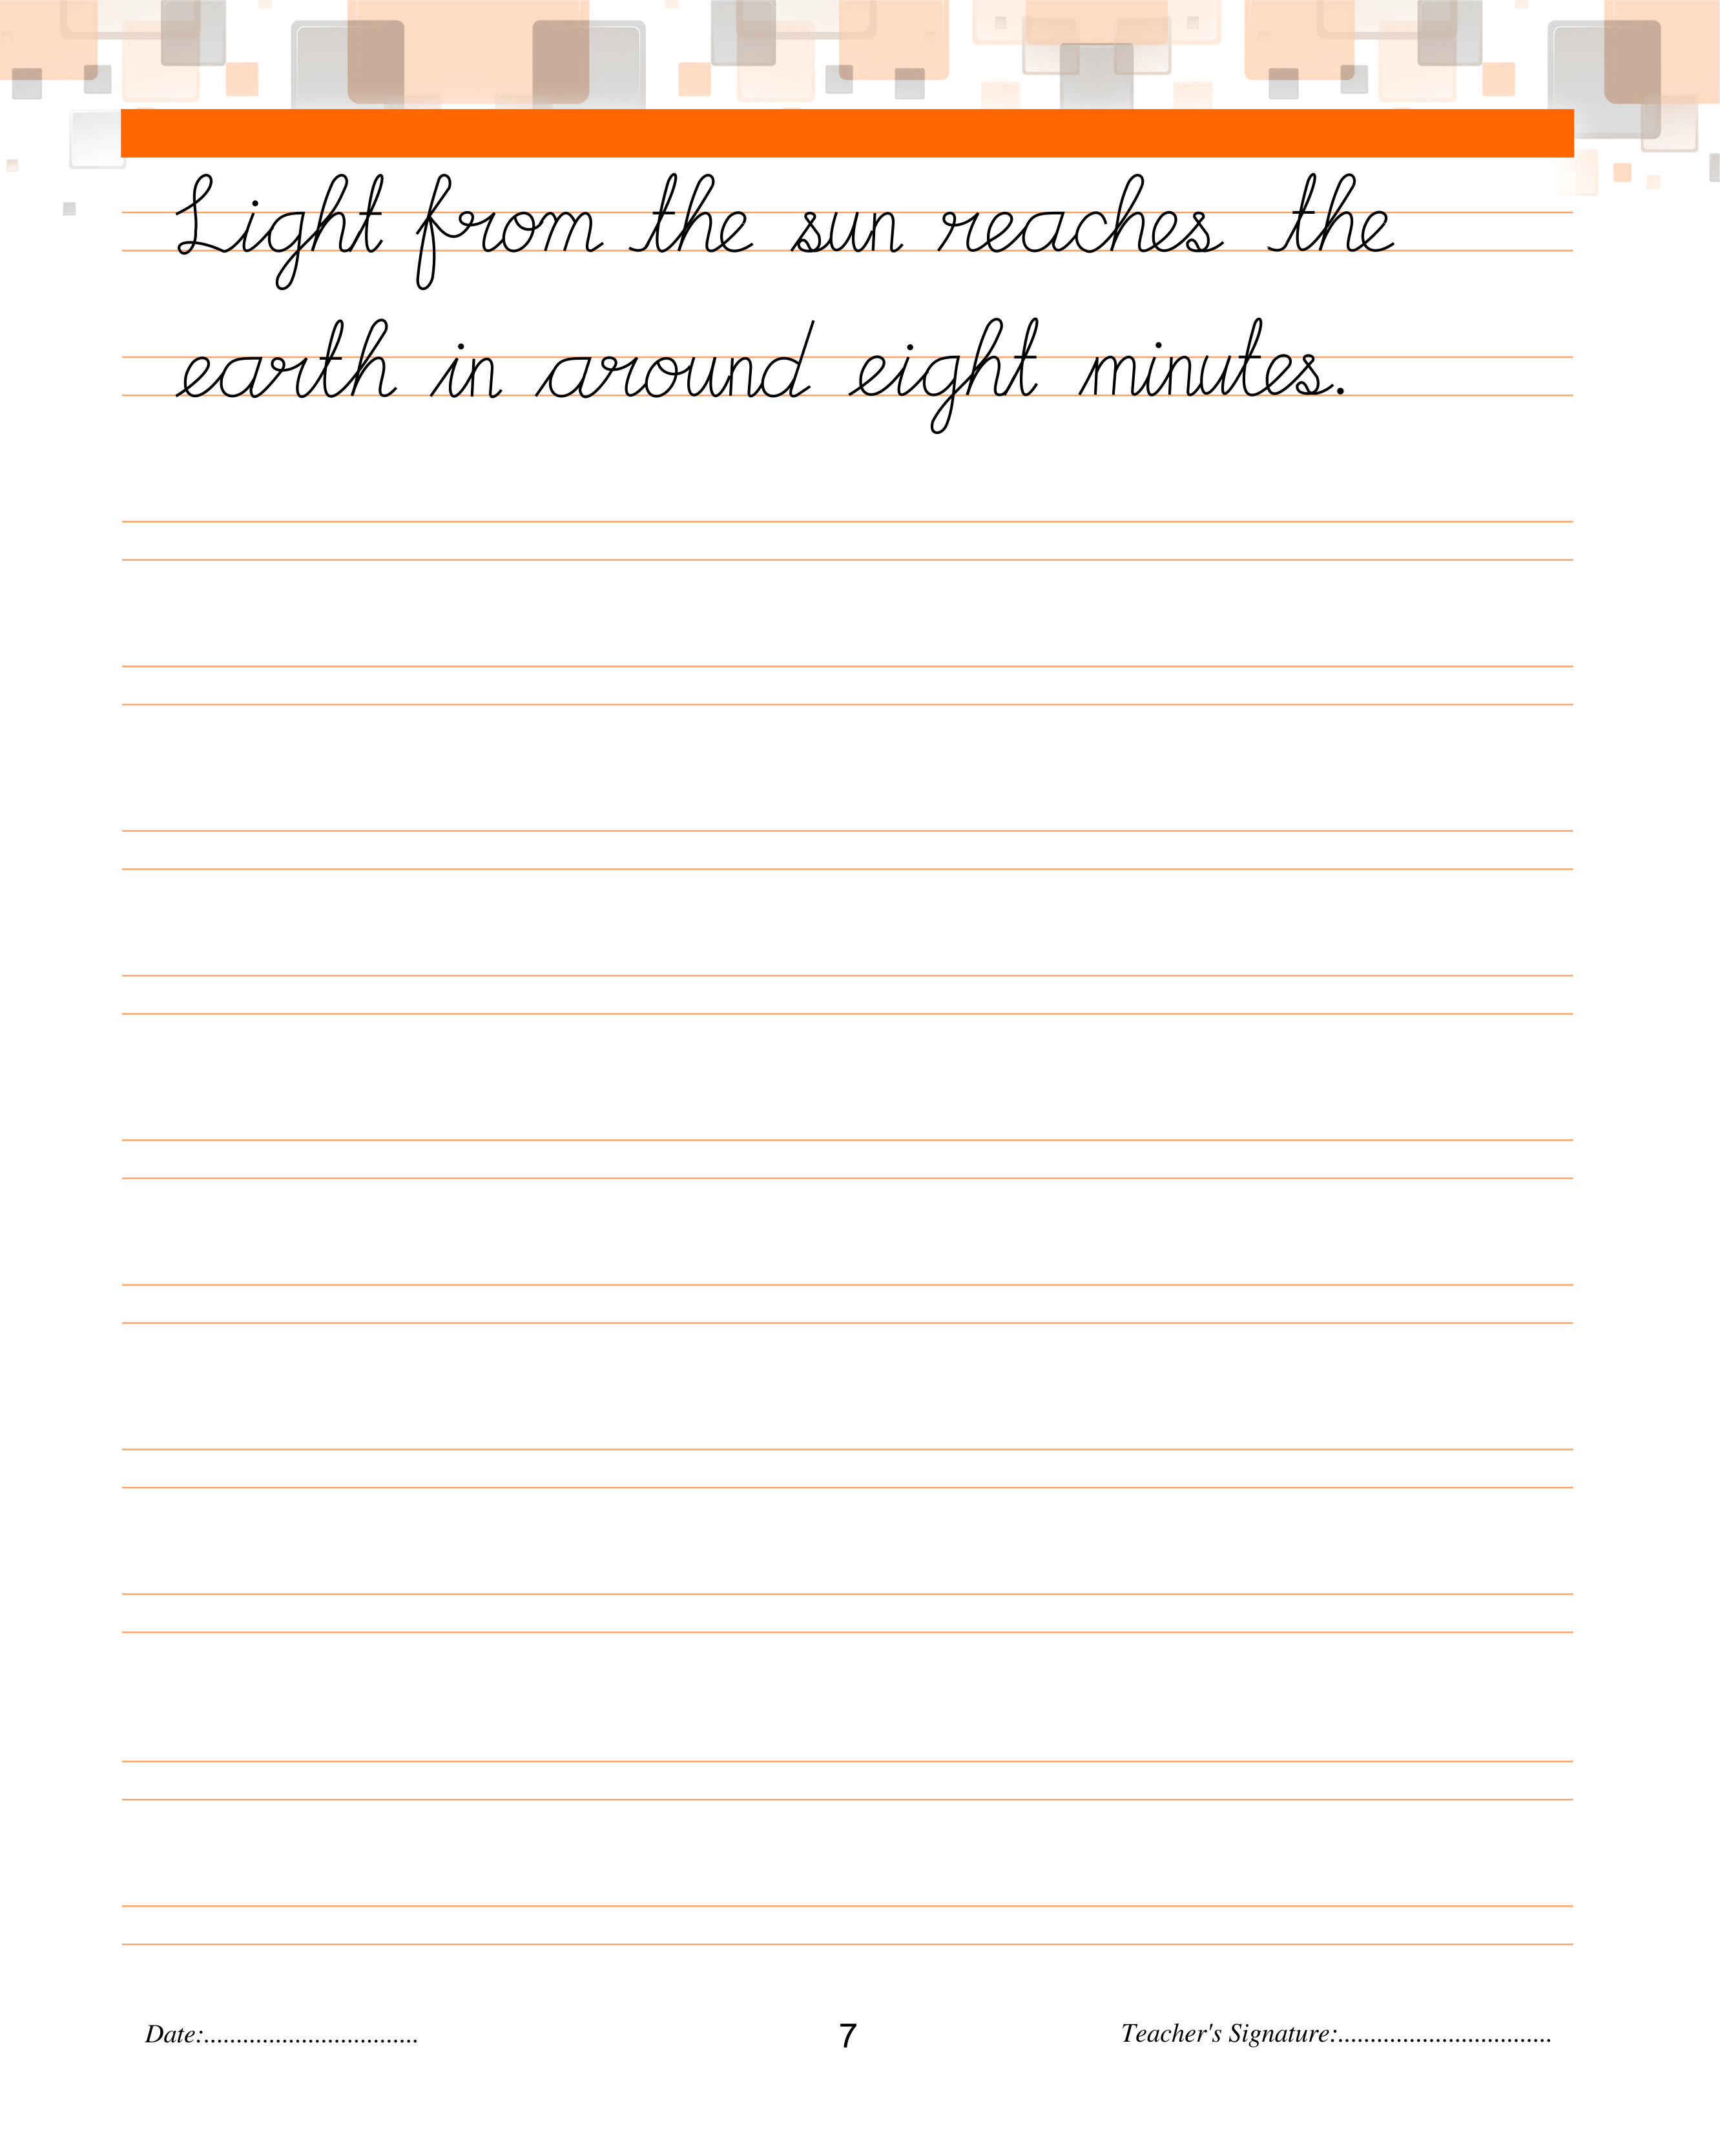 Light from the sun reaches the
earth in around eight minutes.
Date:................................. 7 Teacher's Signature:.................................